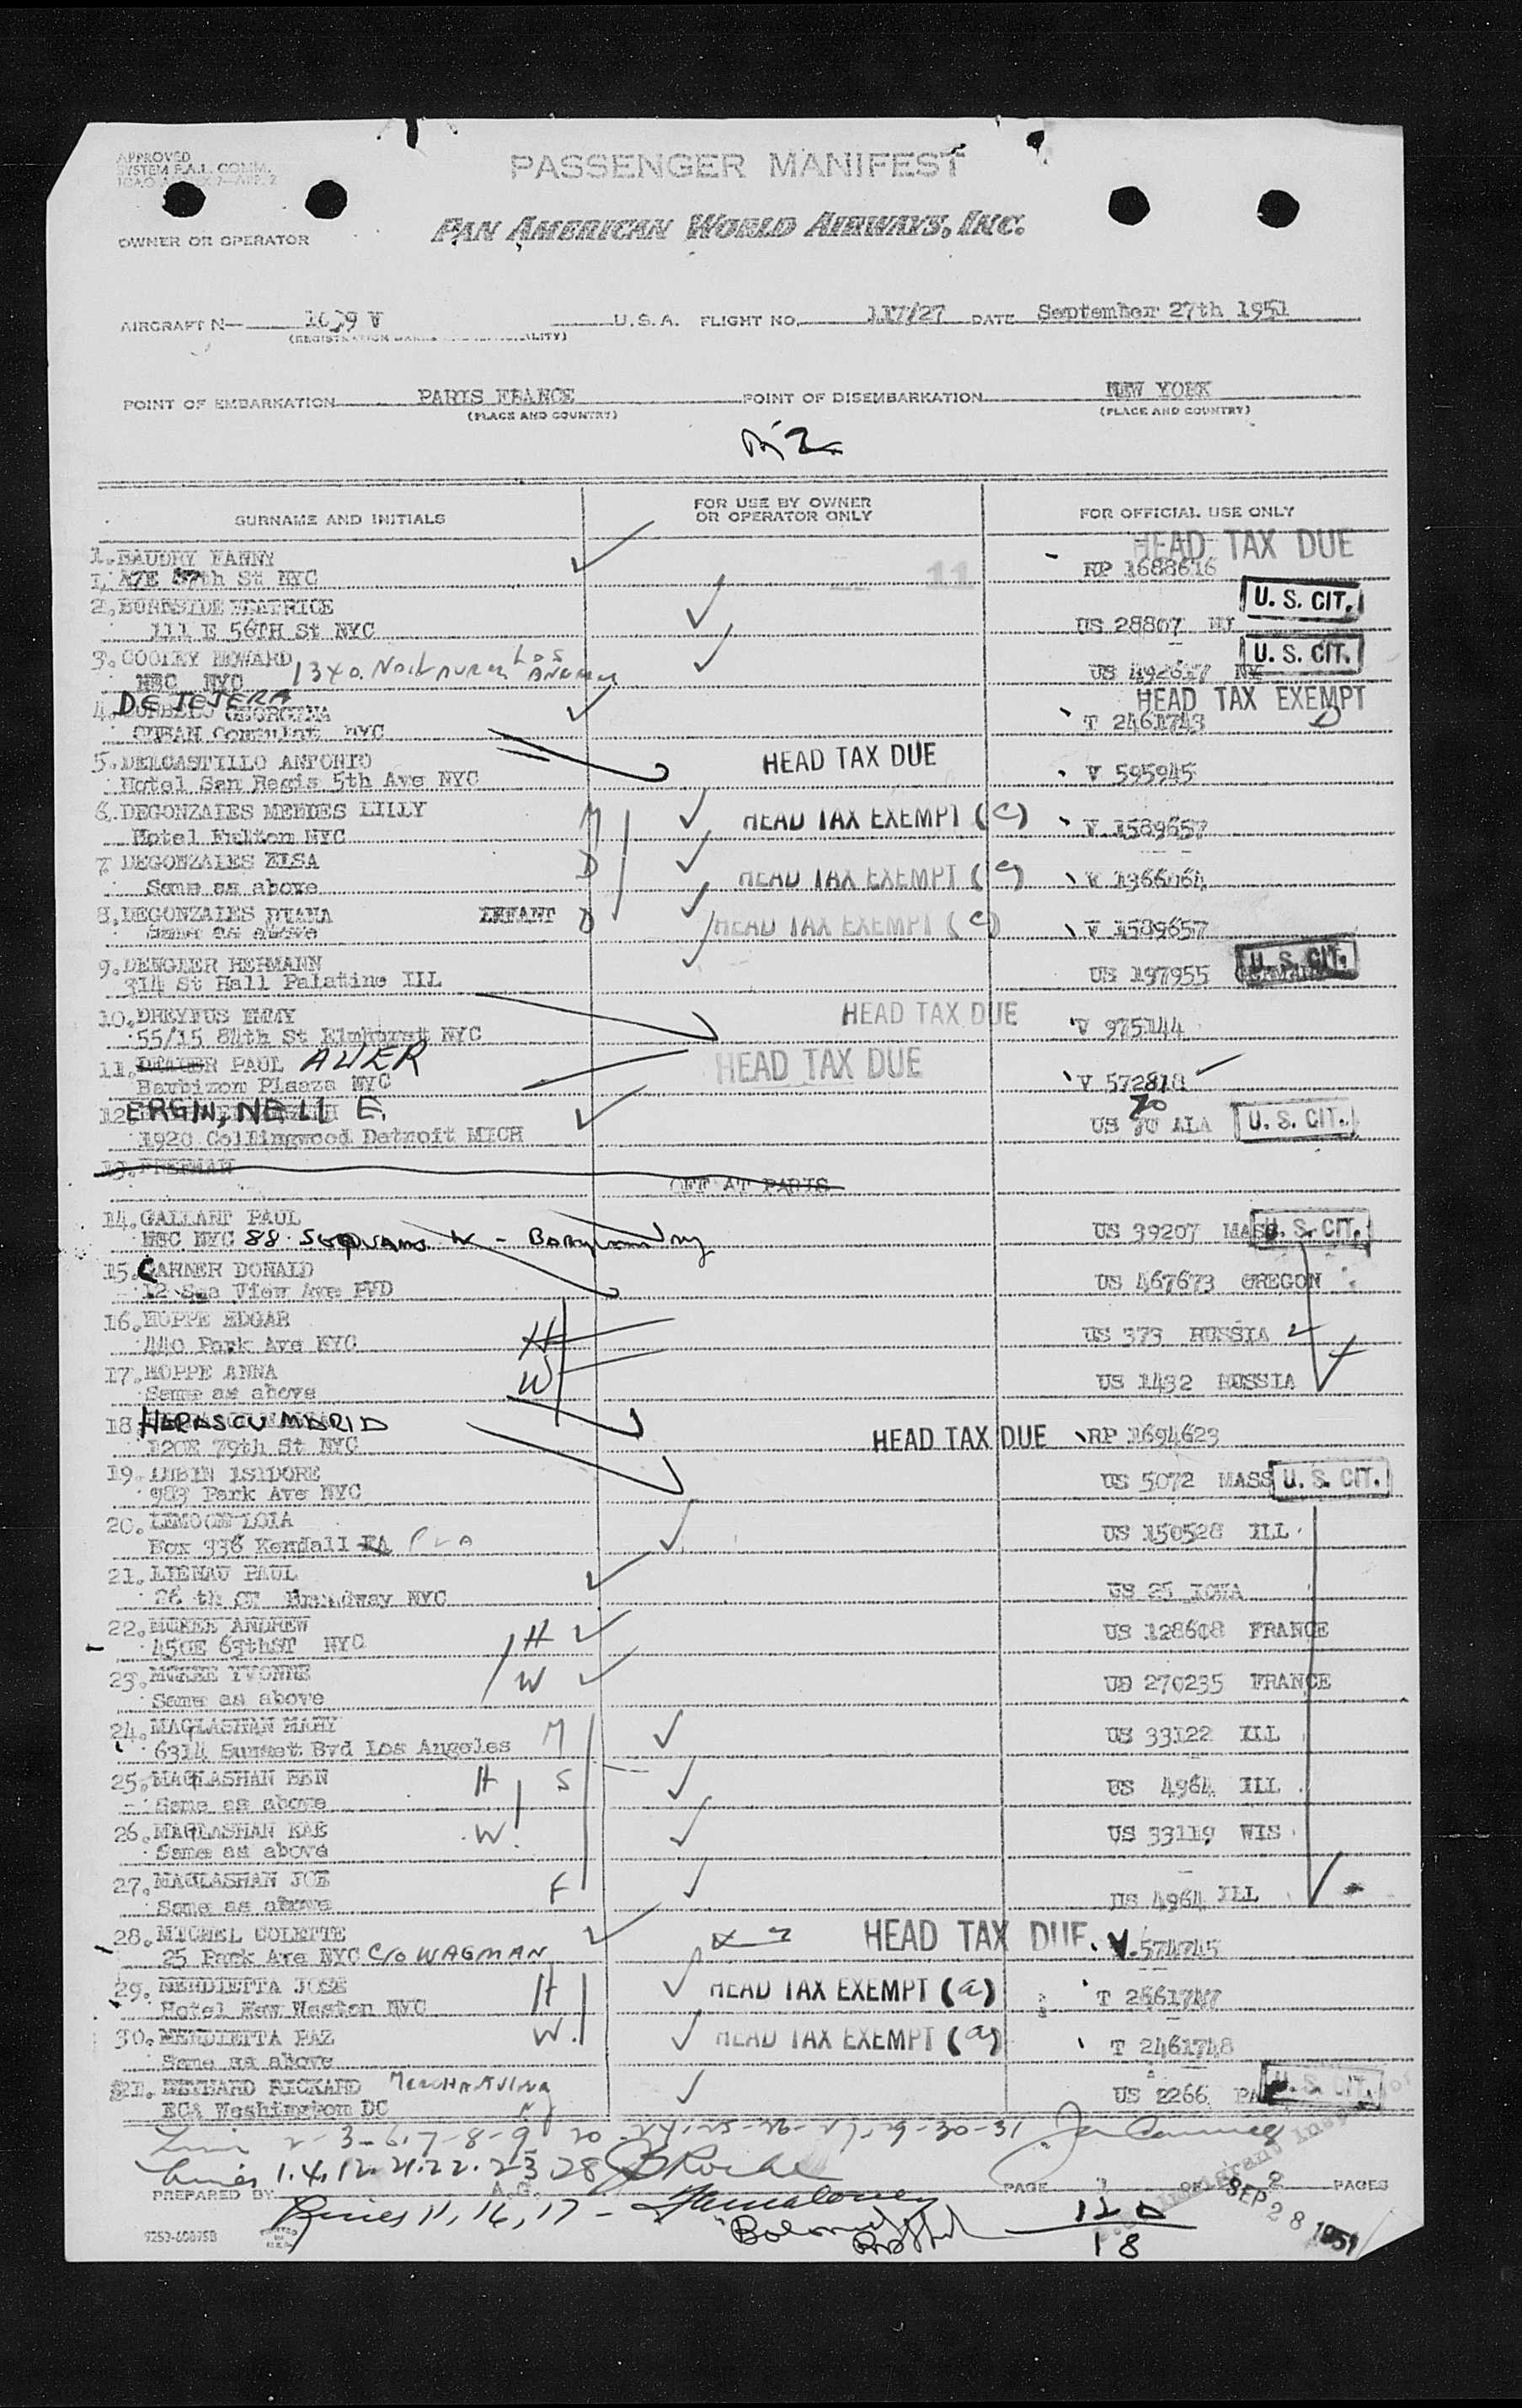 APPROVED
SYSTEM F.A.L. COMM.
PASSENGER MANIFEST
OWNER OR OPERATOR
PAN AMERICAN WORLD AIRWAYS, INC.
AIRCRAFT N— V U.S.A. FLIGHT NO. 117/27 DATE September 27th 1951
POINT OF EMBARKATION PARIS FRANCE POINT OF DISEMBARKATION NEW YORK
(PLACE AND COUNTRY) (PLACE AND COUNTRY)
SURNAME AND INITIALS FOR USE BY OWNER OR OPERATOR ONLY FOR OFFICIAL USE ONLY
HEAD TAX DUE
1. BAUDRY FANNY
57th St NYC 11 RP 1688616
2. BURNSIDE BEATRICE U. S. CIT.
111 E 56TH St NYC US 28807 NJ
3. COOLEY HOWARD 1340 LOS U. S. CIT.
NBC NYC US
DE TEJERA HEAD TAX EXEMPT
4. GEORGINA T 2461743 D
CUBAN Consulat NYC
5. DELCASTILLO ANTONIO HEAD TAX DUE
Hotel San Regis 5th Ave NYC V 595945
6. DEGONZALES MENDES LILLY M HEAD TAX EXEMPT (C)
Hotel Fulton NYC V 1589657
7. DEGONZALES ELSA D
Same as above HEAD TAX EXEMPT (C) V 1366064
8. DEGONZALES DIANA INFANT D HEAD TAX EXEMPT (C)
Same as above V 1589657
9. DENGLER HERMANN U. S. CIT.
314 St Hall Palatine ILL US 197955
10. DREYFUS EMMY HEAD TAX DUE
55/15 84th St Elmhurst NYC V 975144
11. PAUL AUER HEAD TAX DUE
Barbizon Plaaza NYC V 572818
12. ERGIN, NELL E. 70
1920 Collingwood Detroit MICH US 70 ALA U. S. CIT.
13. FREEMAN
OFF AT PARIS
14. GALLANT PAUL US 39207 MASS U. S. CIT.
NBC NYC 88
15. CARNER DONALD
12 Sea View Ave PVD US 467673 OREGON
16. HOPPE EDGAR
440 Park Ave NYC H US 373 RUSSIA
17. HOPPE ANNA
Same as above W US 1432 RUSSIA
18. HERASCU MARIA
120E 79th St NYC HEAD TAX DUE RP 1694623
19. LUBIN ISIDORE
983 Park Ave NYC US 5072 MASS U. S. CIT.
20. LEMOON LOIA
Box 336 Kendall FLA US 150528 ILL
21. LIENAU PAUL
26 th ST Broadway NYC US 25 IOWA
22. MCKEE ANDREW H
450E 63thST NYC US FRANCE
23. MCKEE YVONNE W
Same as above US 270235 FRANCE
24. MAGLASHAN MARY
6314 Sunset Bvd Los Angeles M US 33122 ILL
25. MAGLASHAN BEN H S
Same as above US 4964 ILL
26. MAGLASHAN KAE W.
Same as above US 33119 WIS
27. MAGLASHAN JOE F
Same as above US 4964 ILL
28. MICHEL COLETTE HEAD TAX DUE
25 Park Ave NYC C/O WAGMAN V. 574745
29. MENDIETTA JOSE H HEAD TAX EXEMPT (a)
Hotel New Weston NYC T 2461747
30. MENDIETTA PAZ W. HEAD TAX EXEMPT (a)
Same as above T 2461748
31. RICHARD U. S. CIT.
ECA Washington DC US 2266 PA
2-3-6-7-8-9 20-24-25-26-27-29-30-31
Lines 1.4.12.21.22.23.28
PREPARED BY A.G. PAGE 1 OF 2 PAGES
Lines 11, 16, 17 -
SEP 28 1951
18